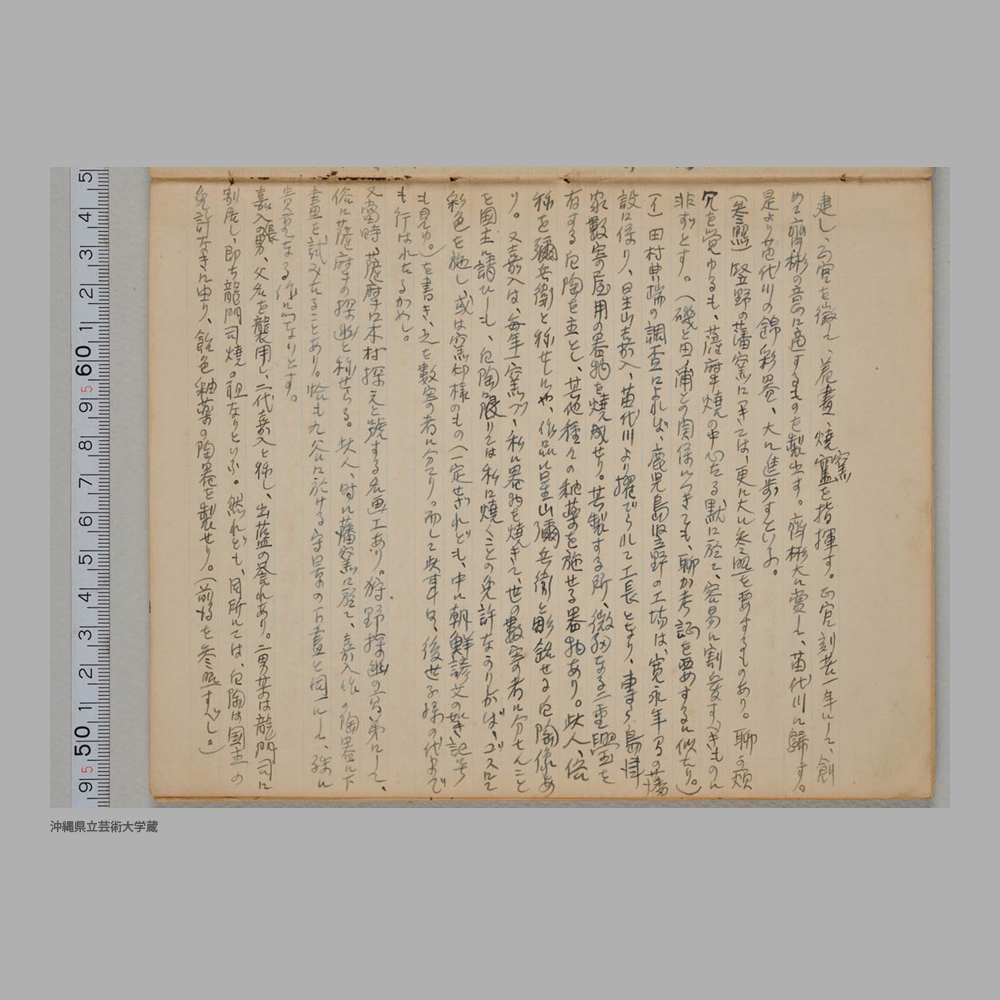 建し、正官を徴して、着畫、燒窯を指揮す。正官刻苦一年にして、創
めて齊彬の意に適するものを製出す。齊彬大に賞して、苗代川に歸す。
是より苗代川の錦彩器、大に進歩すといふ。
(参照)竪野の藩窯につきては、更に大に参照を要するものあり。聊か煩
冗を覚ゆるも、薩摩燒の中心たる點に於て、容易に割愛すべきものに
非ずとす。(磯と田ノ浦との関係につきても、聊か考証を要するに似たり。)
(イ)田村 端の調査によれば、鹿児島竪野の工場は、寛永年間の藩
設に係り、星山嘉入、苗代川より擢でられて工長となり、専ら島津
家數寄屋用の器物を燒成せり。其製する所、微細なる二重 を
有する白陶を主とし、其他種々の釉薬を施せる器物あり。此人、俗
称を彌兵衛と称せしにや、作品に星山彌兵衛と彫銘せる白陶像あ
り。又嘉入は、毎年一窯づゝ私に器物を燒きて、世の數寄者に分たんこと
を國主に請ひしも、白陶に限りては私に燒くことの免許なかりかば、ゴスにて
彩色を施し、或は窯印様のもの(一定せざれども、中に朝鮮諺文の如き記号
も見ゆ。)を書き、之を數寄者に分てり。而して此事は、後世子孫の代まで
も行はれたるが如し。
又當時、薩摩に木村探元と號する名画工あり。狩野探幽の高弟にして、
俗に薩摩の探幽と称せらる。此人、時に藩窯に於て、嘉入作の陶器に下
畫を試みたることあり。恰も九谷に於ける守景の下畫と同じく、殊に
貴重なる作品なりとす。
嘉入の長男、父名を襲用し、二代嘉入と称し、出藍の誉れあり。二男某は龍門司に
別居し、即ち龍門司燒の祖なりといふ。然れども、同所にては、白陶は國主の
免許なきに由り、飴色釉薬の陶器を製せり。(前項を参照すべし。)
5 4 3 2 1 60 9 8 7 6 5 4 3 2 1 50 9
沖縄県立芸術大学蔵